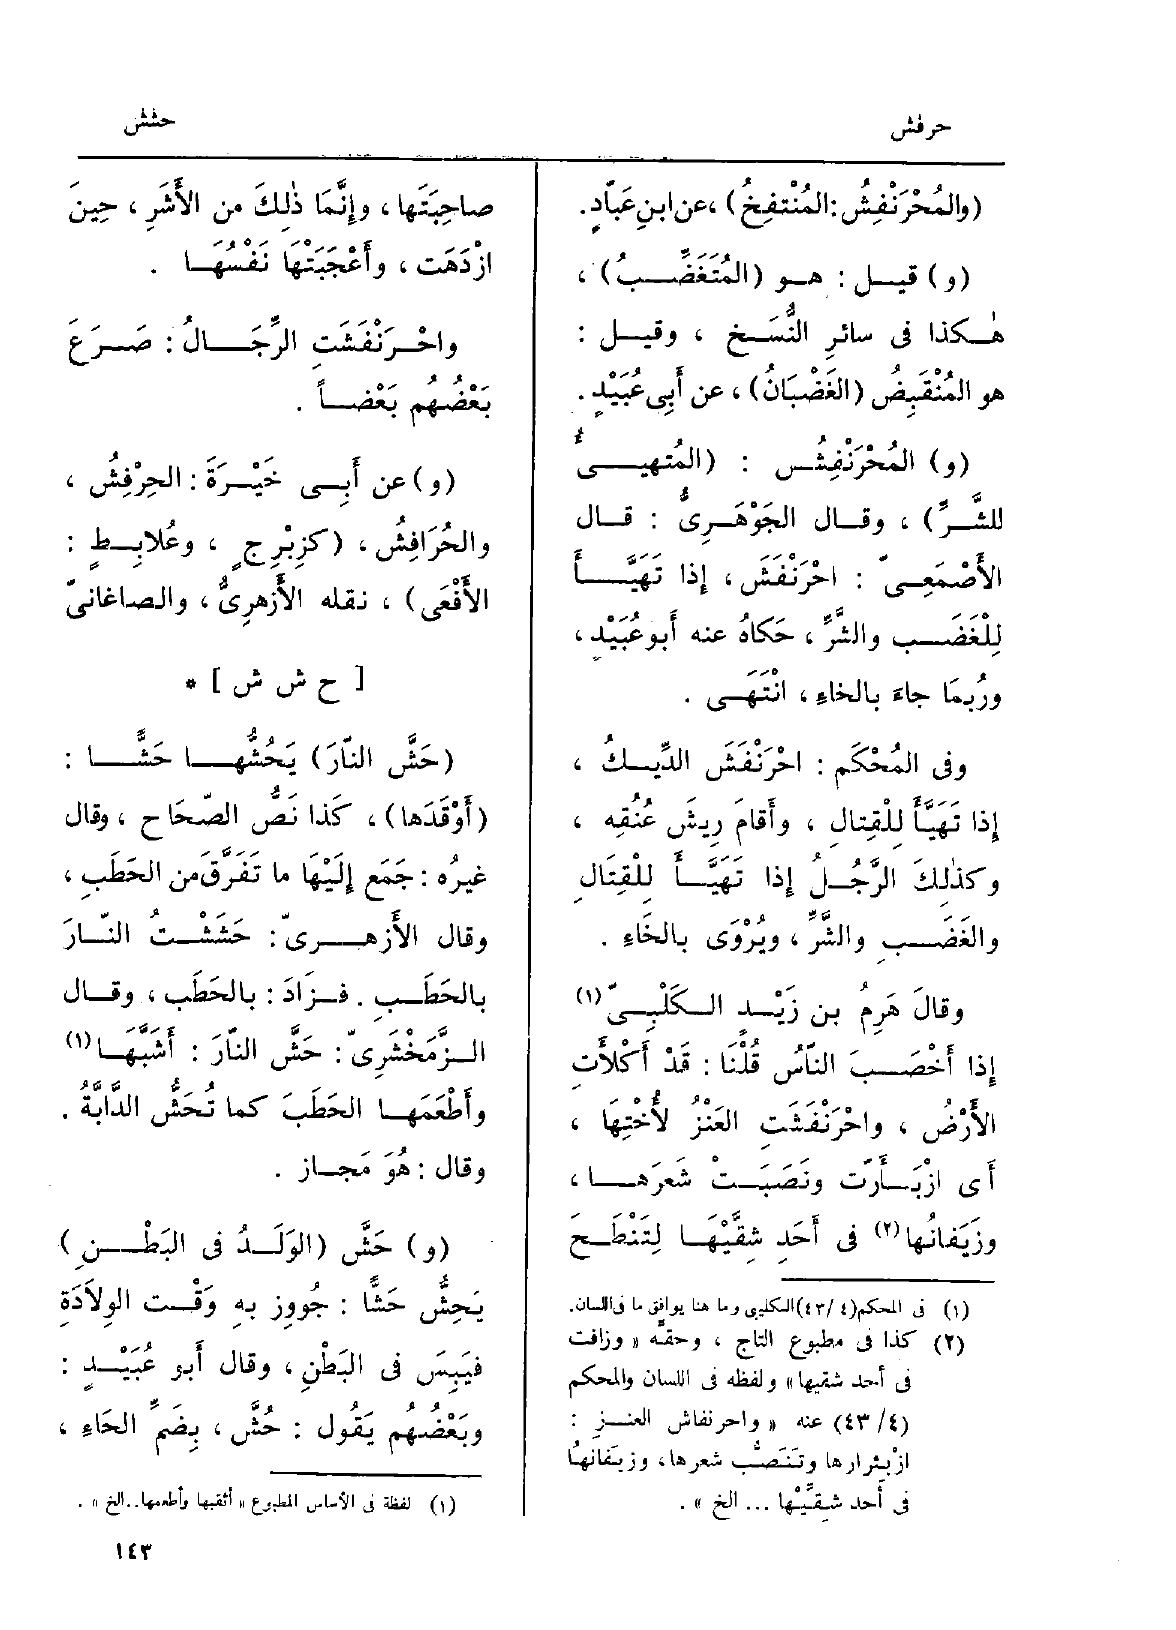 حرفش
حشش
(والمُحْرَنْفِشُ: المُنْتفِخُ)، عن ابنِ عَبّادٍ.
(و) قيـل : هـو (المُتَغَضِّـبُ)،
هٰكذا فى سائرِ النُّسَخِ ، وقيـل :
هو المُنْقَبِضُ (الغَضْبَانُ) ، عن أَبِى عُبَيْدٍ.
(و) المُحْرَنْفِشُ : (المُتهيِـئُ
للشَّـرِّ) ، وقـال الجَوْهَرِىُّ : قـال
الأَصْمَعِـىّ : احْرَنْفَشَ ، إذا تَهَيَّـأَ
لِلْغَضَـبِ والشَّرِّ ، حَكاهُ عنه أَبو عُبَيْدٍ ،
ورُبمَا جاءَ بالخاءِ ، انْتَهَـى .
وفى المُحْكَم : احْرَنْفَشَ الدِّيـكُ ،
إذا تَهَيَّأَ لِلْقِتالِ ، وأَقامَ رِيشَ عُنُقِه ،
وكذٰلِكَ الرَّجُـلُ إذا تَهَيَّـأَ لِلْقِتَالِ
والغَضَـبِ والشَّرِّ ، ويُرْوَى بالخَاءِ .
وقالَ هَرِمُ بن زَيْـدٍ الـكَلْبِـىّ (١)
إذا أَخْصَـبَ النّاسُ قُلْنَا : قَدْ أَكْلأَتِ
الأَرْضُ ، واحْرَنْفَشَتِ العَنْزُ لأُخْتِهَا ،
أَى ازْبَـأَرّت ونَصَبَـتْ شَعرَهـا ،
وزَيَفانُها (٢) فى أَحَدِ شِقَّيْهَـا لِتَنْطَـحَ
(١) فى المحكم (٤/ ٤٣) الكليبى وما هنا يوافق ما فى اللسان.
(٢) كذا فى مطبوع التاج ، وحقّه « وزافت
فى أحد شقيها» ولفظه فى اللسان والمحكم
(٤/ ٤٣) عنه « واحرنفاش العنـزِ :
ازْبِئرارها وتَنَصُّب شعرها، وزيَفانهُا
فى أحد شقيِّها ... الخ » .
صاحِبَتَها ، وإنَّمَا ذٰلِكَ من الأَشَرِ ، حِينَ
ازْدَهَت ، وأَعْجَبَتْهَا نَفْسُهَـا .
واحْـرَنْفَشَتِ الرِّجَـالُ : صَـرَعَ
بَعْضُهُم بَعْضـاً .
(و) عن أَبِـى خَيْـرَةَ : الحِرْفِشُ ،
والحُرَافِشُ ، (كزِبْرِجٍ ، وعُلابِـطٍ :
الأَفْعَى) ، نقله الأَزهرِىُّ ، والصاغانىّ
[ ح ش ش ] *
(حَشَّ النّارَ) يَحُشُّهـا حَشًّـا :
(أَوْقَدَها) ، كَذا نَصُّ الصّحَاحِ ، وقال
غيرُه : جَمَع إلَيْهَا ما تَفَرَّقَ من الحَطَبِ ،
وقال الأَزهـرِىّ : حَشَشْـتُ النّـارَ
بالحَطَـبِ . فـزَادَ : بالحَطَبِ ، وقـال
الـزَّمَخْشَرِىّ : حَشَّ النّارَ : أَشَبَّهَـا (١)
وأَطْعَمَهـا الحَطَبَ كما تُحَشُّ الدّابَّةُ .
وقال : هُوَ مَجـاز .
(و) حَشَّ (الوَلَـدُ فى البَطْـنِ)
يَحِشُّ حَشًّا : جُووِزَ بِه وَقْـت الوِلاَدَةِ
فيَبِسَ فى البَطْنِ ، وقال أَبو عُبَيْـدٍ :
وبَعْضُهم يَقُول : حُشَّ ، بِضَمِّ الحَاءِ ،
(١) لفظة فى الأساس المطبوع « أثقبها وأطعمها..الخ » .
١٤٣